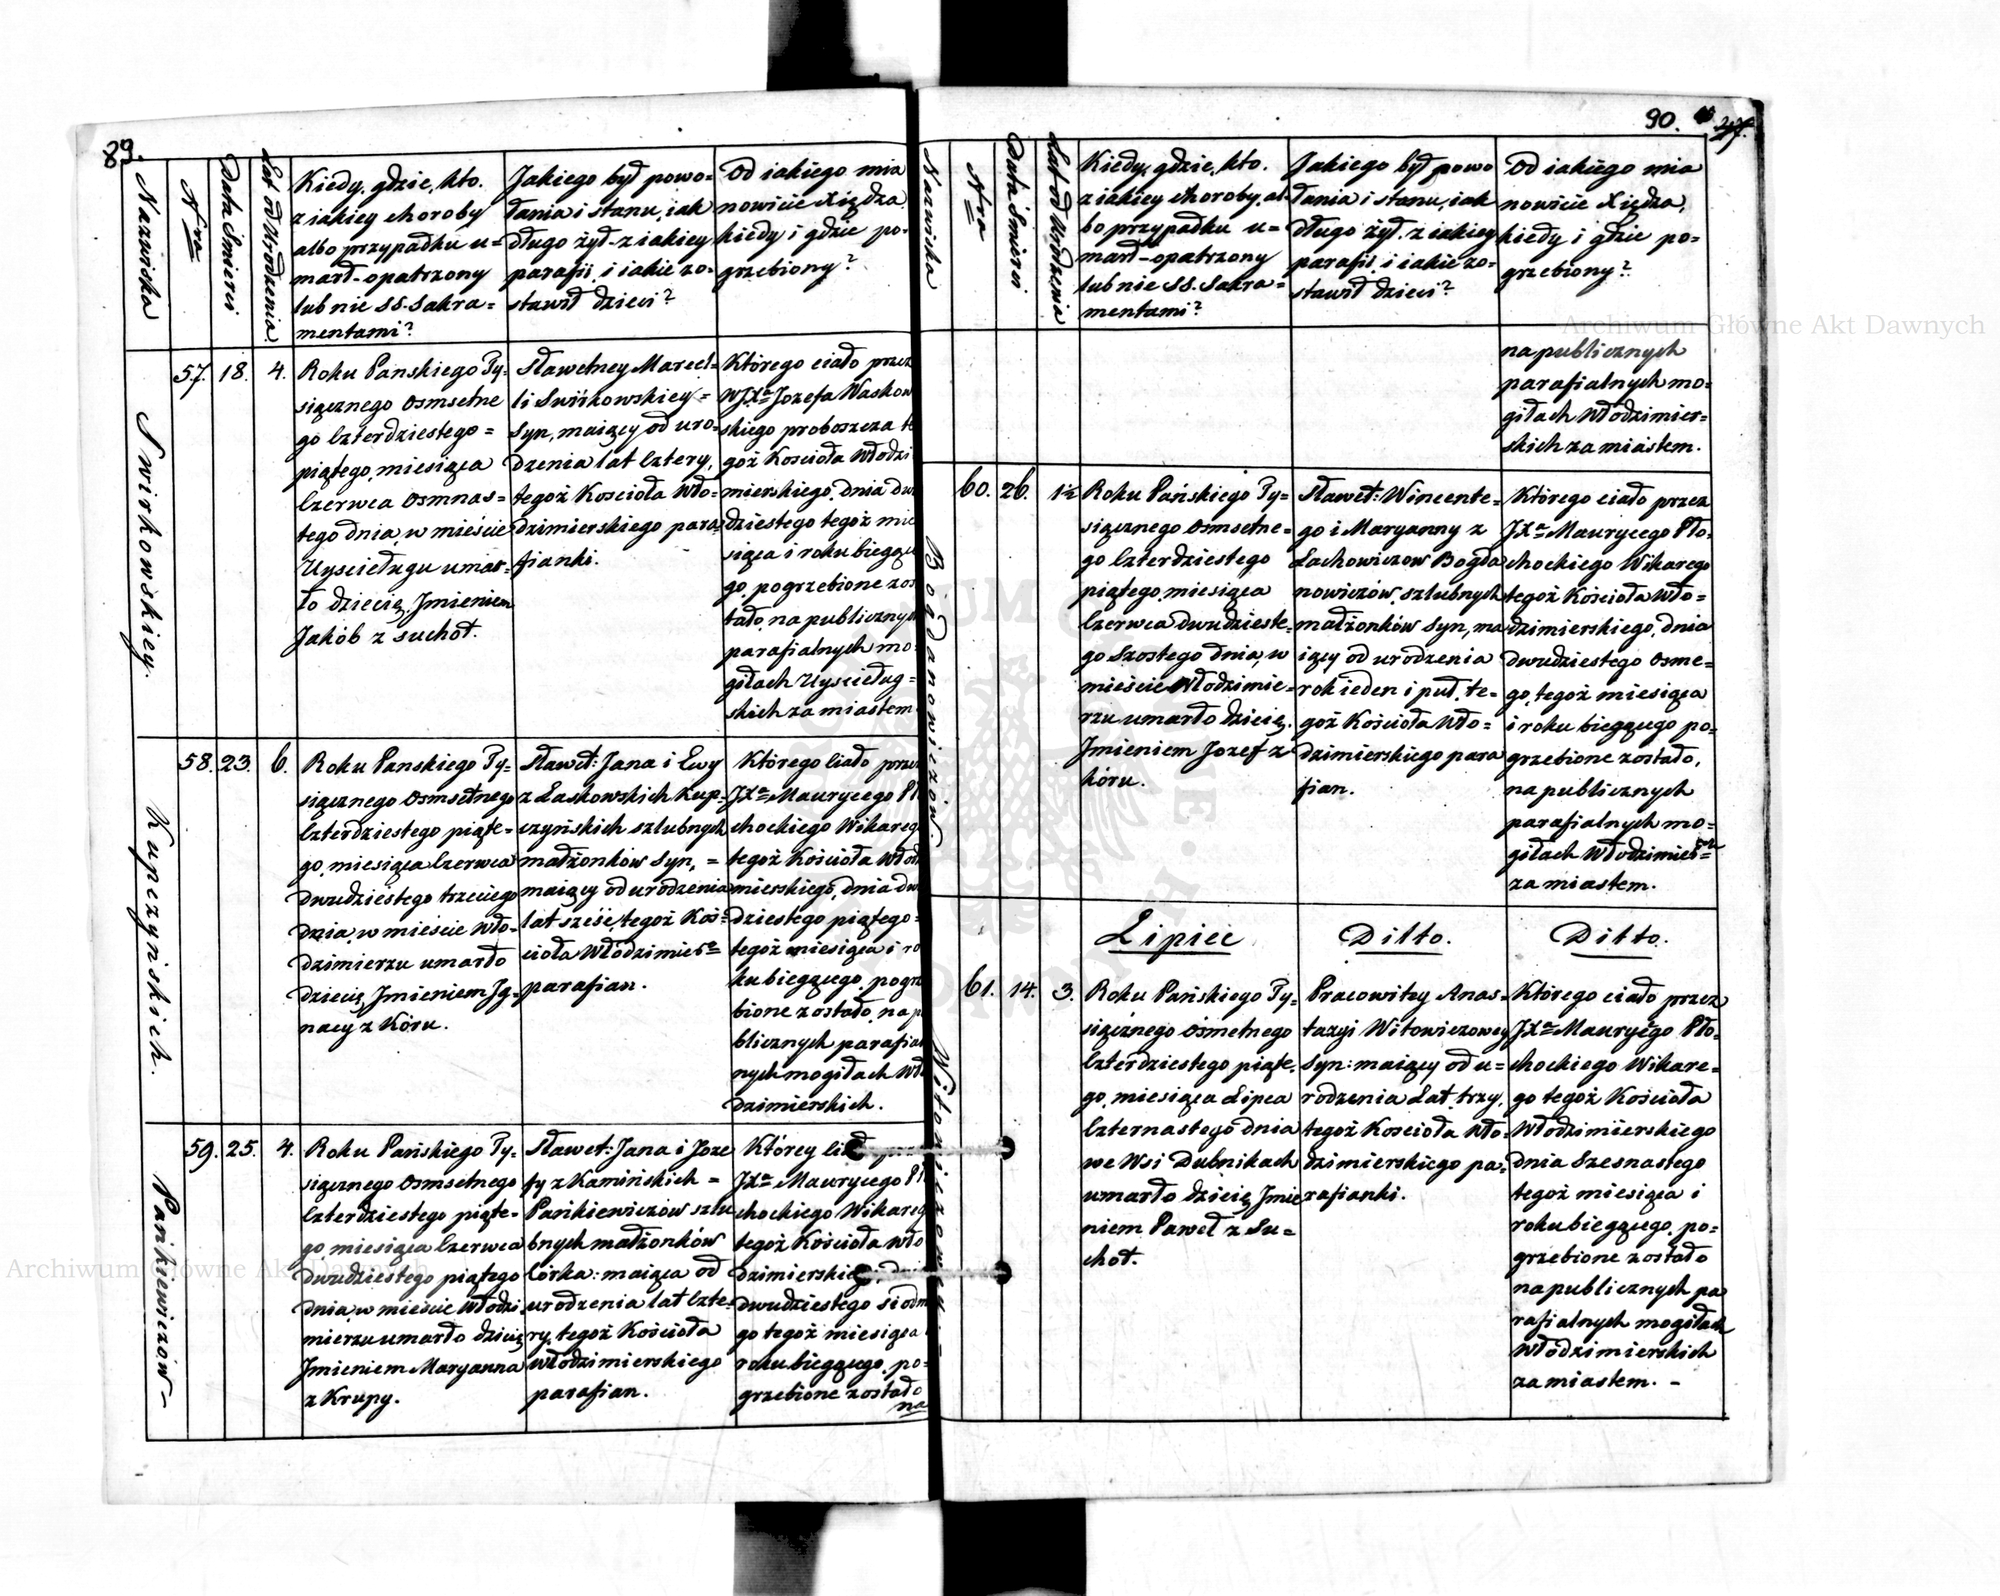 89.
Nazwiska
Nro
Data Śmierci
Lat od Urodzenia
Kiedy, gdzie, kto.
z iakiey choroby
albo przypadku u=
marł - opatrzony
lub nie SS. Sakra=
mentami?
Jakiego był powo=
łania i stanu, iak
długo żył - z iakiey
parafii, i iakie zo=
stawił dzieci?
Od iakiego mia
nowicie Xiędza,
kiedy i gdzie po=
grzebiony?
Swirkowskiey.
57.
18.
4.
Roku Panskiego Ty=
siącznego Osmsetne
go Czterdziestego =
piątego, miesiąca
Czerwca Osmnas=
tego dnia, w mieście
Uyścieługu umar=
ło dziecię, Jmieniem
Jakób z suchot.
Sławetney Marcel=
li Swirkowskiey =
Syn, maiący od uro=
dzenia lat Cztery,
tegoż Kościoła Wło=
dzimierskiego para
fianki.
Którego ciało przez
WJXa Jozefa Waskow
skiego proboszcza te
goż Kościoła Włodzi
mierskiego, dnia dwu
dziestego tegoż mie
siąca i roku bieżące
go, pogrzebione zos
tało, na publicznych
parafialnych mo=
giłach Uyścieług=
skich za miastem
Kupczyńskich.
58.
23.
6.
Roku Panskiego Ty=
siącznego Osmsetnego
Czterdziestego piąte=
go, miesiąca Czerwca
Dwudziestego trzeciego
dnia, w mieście Wło=
dzimierzu umarło
dziecię, Jmieniem Jg=
nacy z Kóru.
Sławet: Jana i Ewy
z Laskowskich Kup=
czyńskich szlubnych
małżonków Syn, =
maiący od urodzenia
lat sześć, tegoż Koś=
cioła Włodzimier=
parafian.
Którego Ciało przez
JXa Maurycego Pło
chockiego Wikareg
tegoż Kościoła Włod
mierskiego, dnia dwu
dziestego piątego =
tegoż miesiąca i ro
ku bieżącego, pogrze
bione zostało, na p
blicznych parafial
nych mogiłach Wło
dzimierskich.
Pańkiewiczów -
59.
25.
4.
Roku Pańskiego Ty=
siącznego Osmsetnego
Czterdziestego piąte=
go, miesiąca Czerwca
Dwudziestego piątego
dnia, w mieście Włodzi
mierzu umarło dziecię
Jmieniem Maryanna
z Krupy.
Sławet: Jana i Joze
fy z Kamińskich =
Pańkiewiczów szlu
bnych małżonków
Córka: maiąca od
urodzenia lat Czte=
ry, tegoż Kościoła
Włodzimierskiego
parafian.
Którey
JXa Maurycego Pł
chockiego Wikareg
tegoż Kościoła Wło
dzimierskie
dwudziestego siódm
go tegoż miesiąca
roku bieżącego, po=
grzebione zostało
na
90.
Nazwiska
Nro
Data Śmierci
Lat od Urodzenia
Kiedy, gdzie, kto.
z iakiey choroby, al=
bo przypadku u=
marł - opatrzony
lub nie SS. Sakra=
mentami?
Jakiego był powo
łania i stanu, iak
długo żył. z iakiey
parafii, i iakie zo=
stawił dzieci?
Od iakiego mia
nowicie Xiędza,
kiedy i gdzie po=
grzebiony?
na publicznych
parafialnych mo=
giłach Włodzimier=
skich za miastem.
Bogdanowiczów.
60.
26.
1½
Roku Pańskiego Ty=
siącznego Osmsetne=
go Czterdziestego
piątego, miesiąca
Czerwca dwudzieste=
go Szostego dnia, w
mieście Włodzimie=
rzu umarło dziecię,
Jmieniem Jozef z
kóru.
Sławet: Wincente=
go i Maryanny z
Lachowiczow Bogda
nowiczów, szlubnych
małżonków Syn, ma
iący od urodzenia
rok ieden i puł, te=
goż Kościoła Wło=
dzimierskiego para
fian.
Którego ciało przez
JXa Maurycego Pło=
chockiego Wikarego
tegoż Kościoła Wło=
dzimierskiego, dnia
dwudziestego Osme=
go, tegoż miesiąca
i roku bieżącego po=
grzebione zostało,
na publicznych
parafialnych mo=
giłach Włodzimier=
za miastem.
Lipiec
Ditto.
Ditto.
Witowiczowey
61.
14.
3.
Roku Pańskiego Ty=
siącznego Osmetnego
Czterdziestego piąte=
go, miesiąca Lipca
Czternastego dnia
we Wsi Dubnikach
umarło dziecię Jmie
niem Paweł z Su=
chot.
Pracowitey Anas=
tazyi Witowiczowey
Syn: maiący od u=
rodzenia Lat, trzy,
tegoż Kościoła Wło=
dzimierskiego pa=
rafianki.
Którego ciało przez
JXa Maurycego Pło=
chockiego Wikare=
go tegoż Kościoła
Włodzimierskiego
dnia Szesnastego
tegoż miesiąca i
roku bieżącego, po=
grzebione zostało
na publicznych pa
rafialnych mogiłach
Włodzimierskich
za miastem. -
Archiwum Główne Akt Dawnych
Archiwum Główne Akt Dawnych